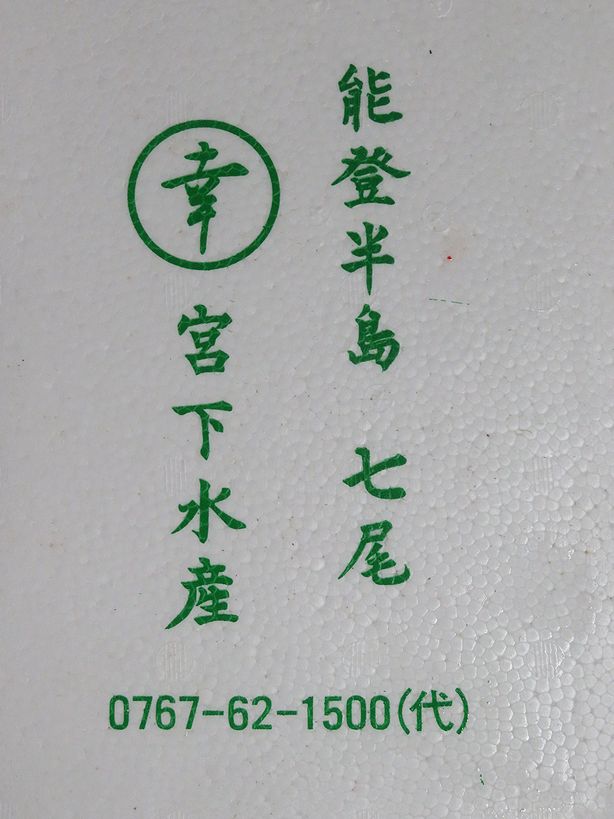 能登半島 七尾
幸
宮下水産
0767-62-1500(代)